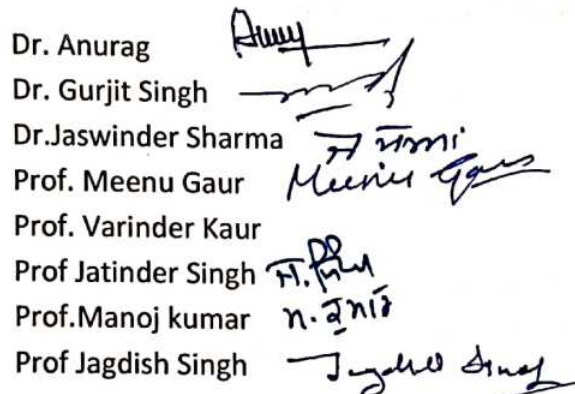 Dr. Anurag
Dr. Gurjit Singh
Dr.Jaswinder Sharma ਜ ਸ਼ਰਮਾ
Prof. Meenu Gaur Meenu Gaur
Prof. Varinder Kaur
Prof Jatinder Singh ਜ. ਸਿੰਘ
Prof.Manoj kumar ਮ. ਕੁਮਾਰ
Prof Jagdish Singh Jagdish Singh